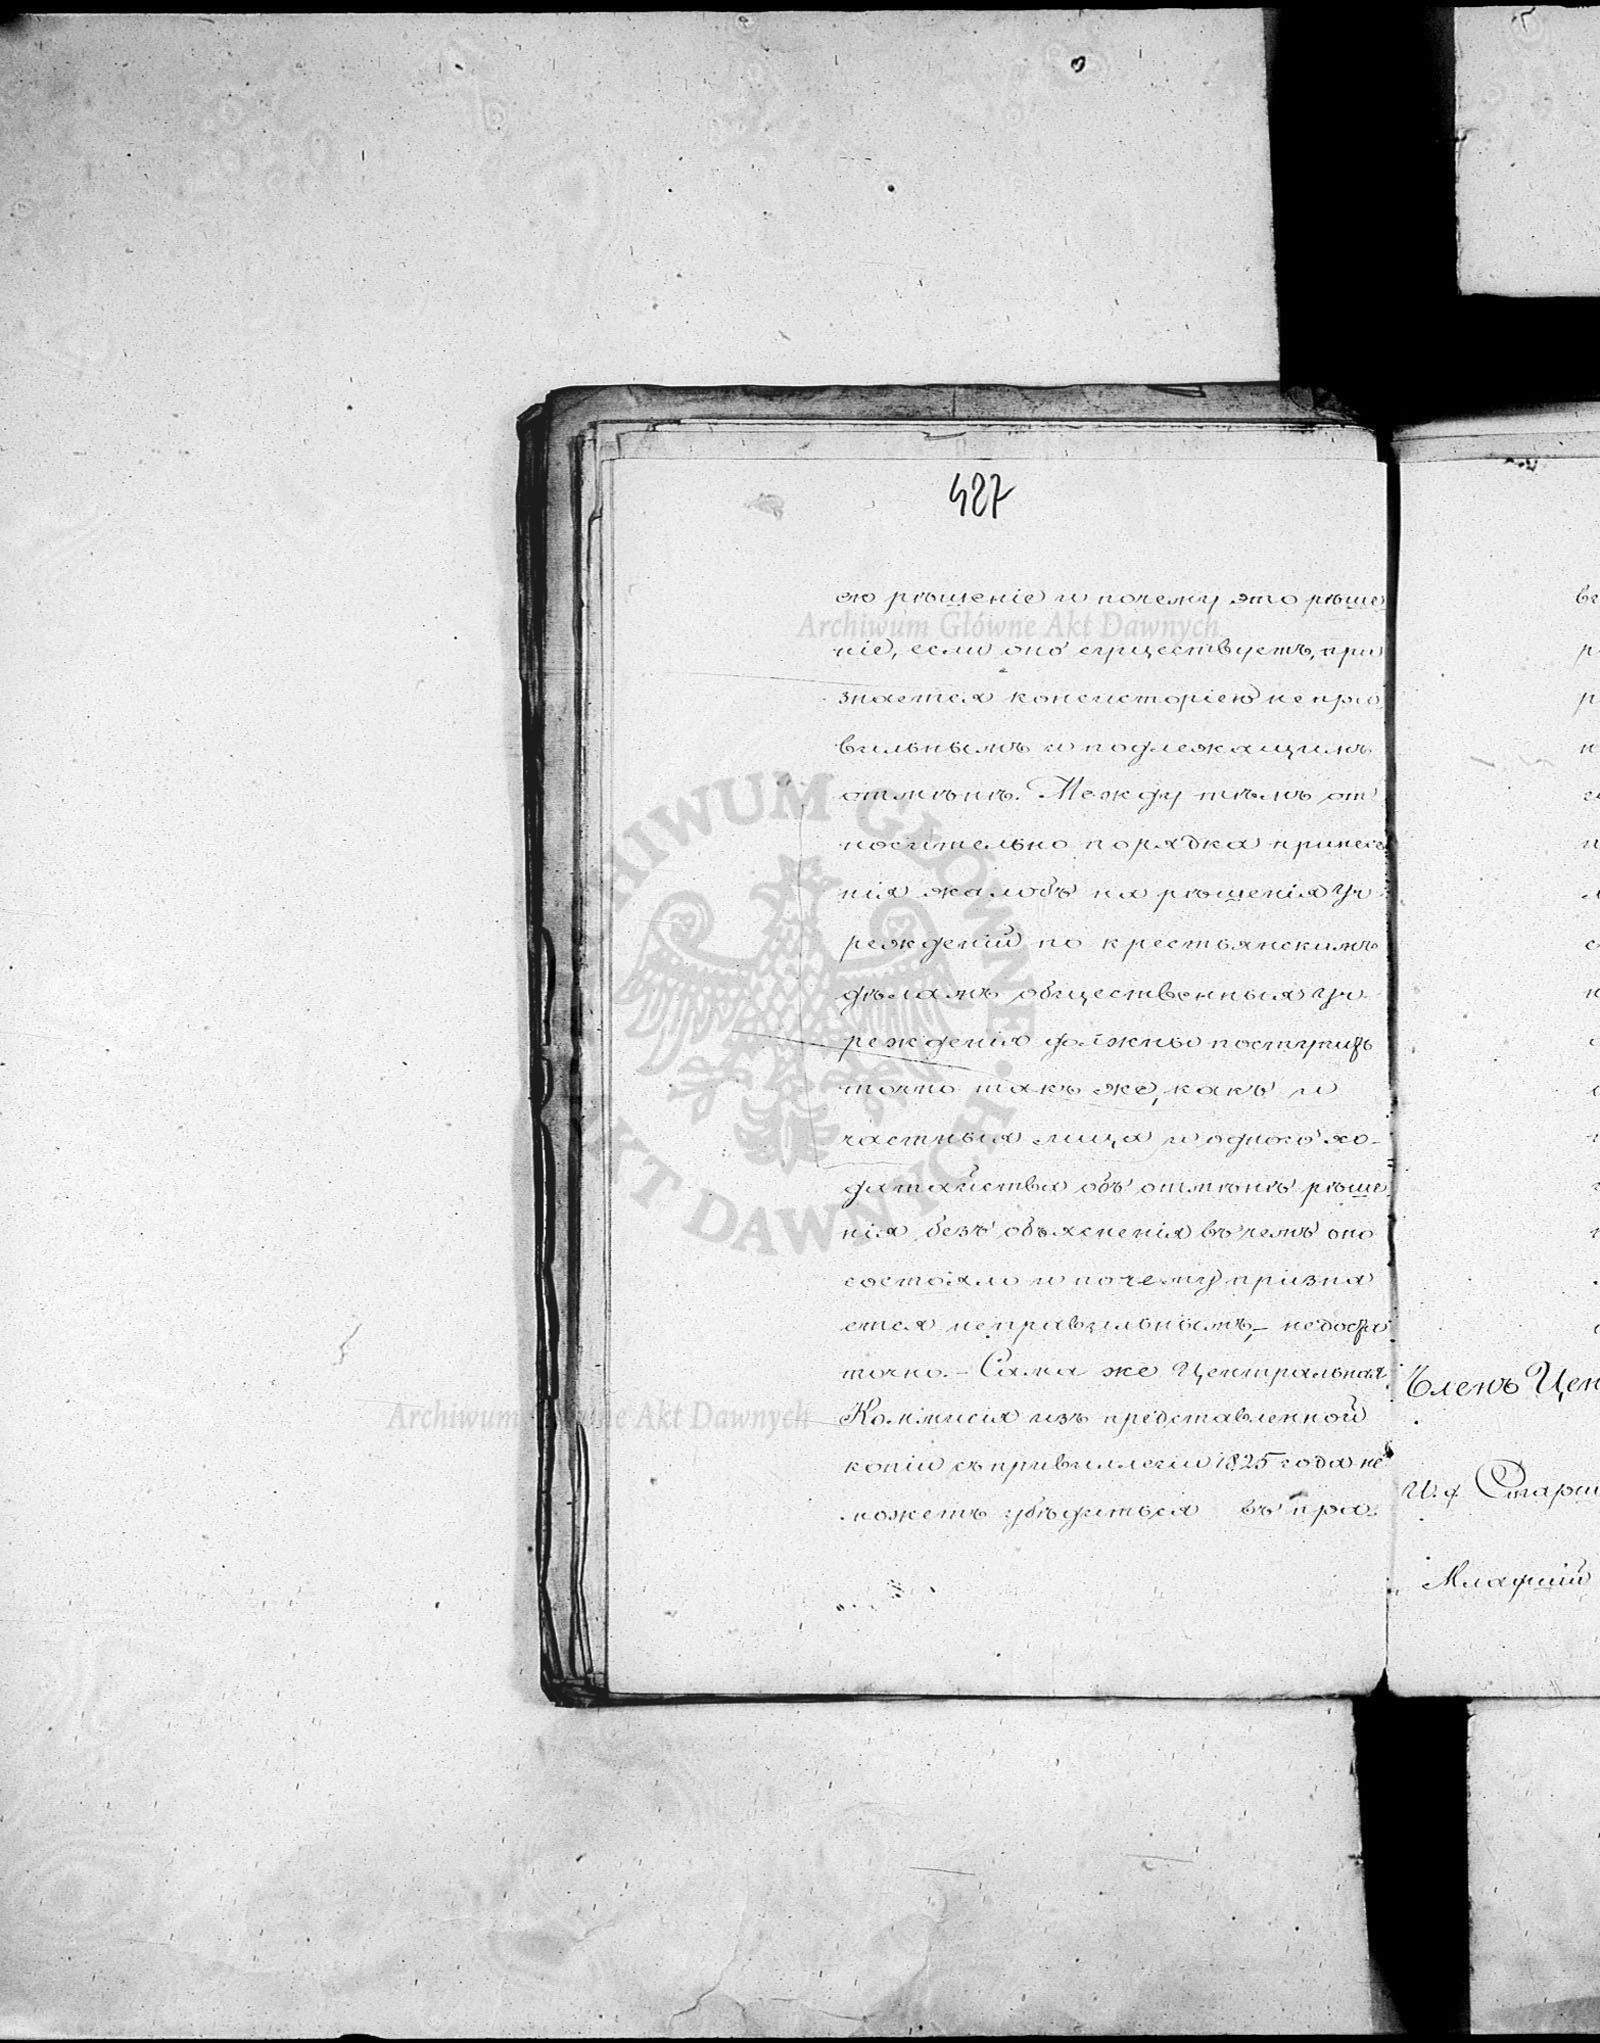 427
ею рѣшеніе и почему это рѣше
ніе, если оно существуетъ, при
знается консисторіею непра
вильнымъ и подлежащимъ
отмѣнѣ. Между тѣмъ от
носительно порядка принесе
нія жалобъ на рѣшенія уч
режденій по крестьянскимъ
дѣламъ общественныя уч
режденія должны поступать
точно такъ же, какъ и
частныя лица и одного хо-
датайства объ отмѣнѣ рѣше
нія безъ объясненія въ чемъ оно
состояло и почему призна
ется неправильнымъ,– недоста
точно.– Сама же Центральная
Коммисія изъ представленной
копіи съ привиллегіи 1825 года не
можетъ убѣдиться въ пра-
Членъ Цен
И. д. Старш
Младшій
Archiwum Główne Akt Dawnych
ARCHIWUM GŁÓWNE AKT DAWNYCH
Archiwum Główne Akt Dawnych